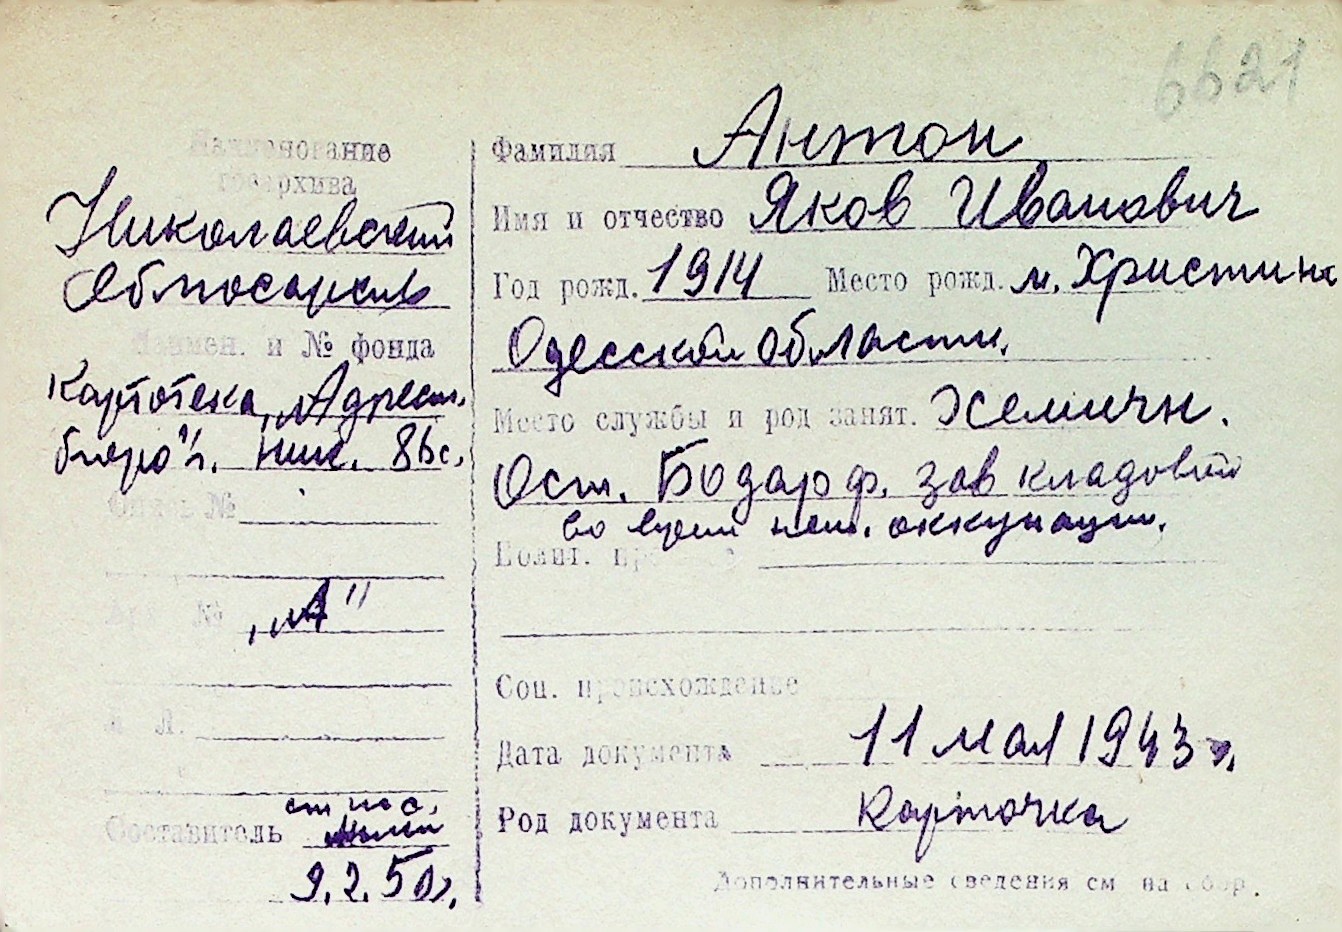 6621
Наименование
госархива
Николаевский
Облгосархив
Наимен. и № фонда
Картотека „Адресн.
бюро" г. Ник.
Опись №
Арх. №
„А"
Л. Л.
Составитель
9.2.50 г.
Фамилия Антон
Имя и отчество Яков Иванович
Год рожд. 1914 Место рожд. м. Христин
Одесской области.
Место службы и род занят.
зав кладовой
во время нем. оккупации.
Полит.
Соц. происхождение
Дата документа 11 мая 1943 г.
Род документа Карточка
Дополнительные сведения см на обор.